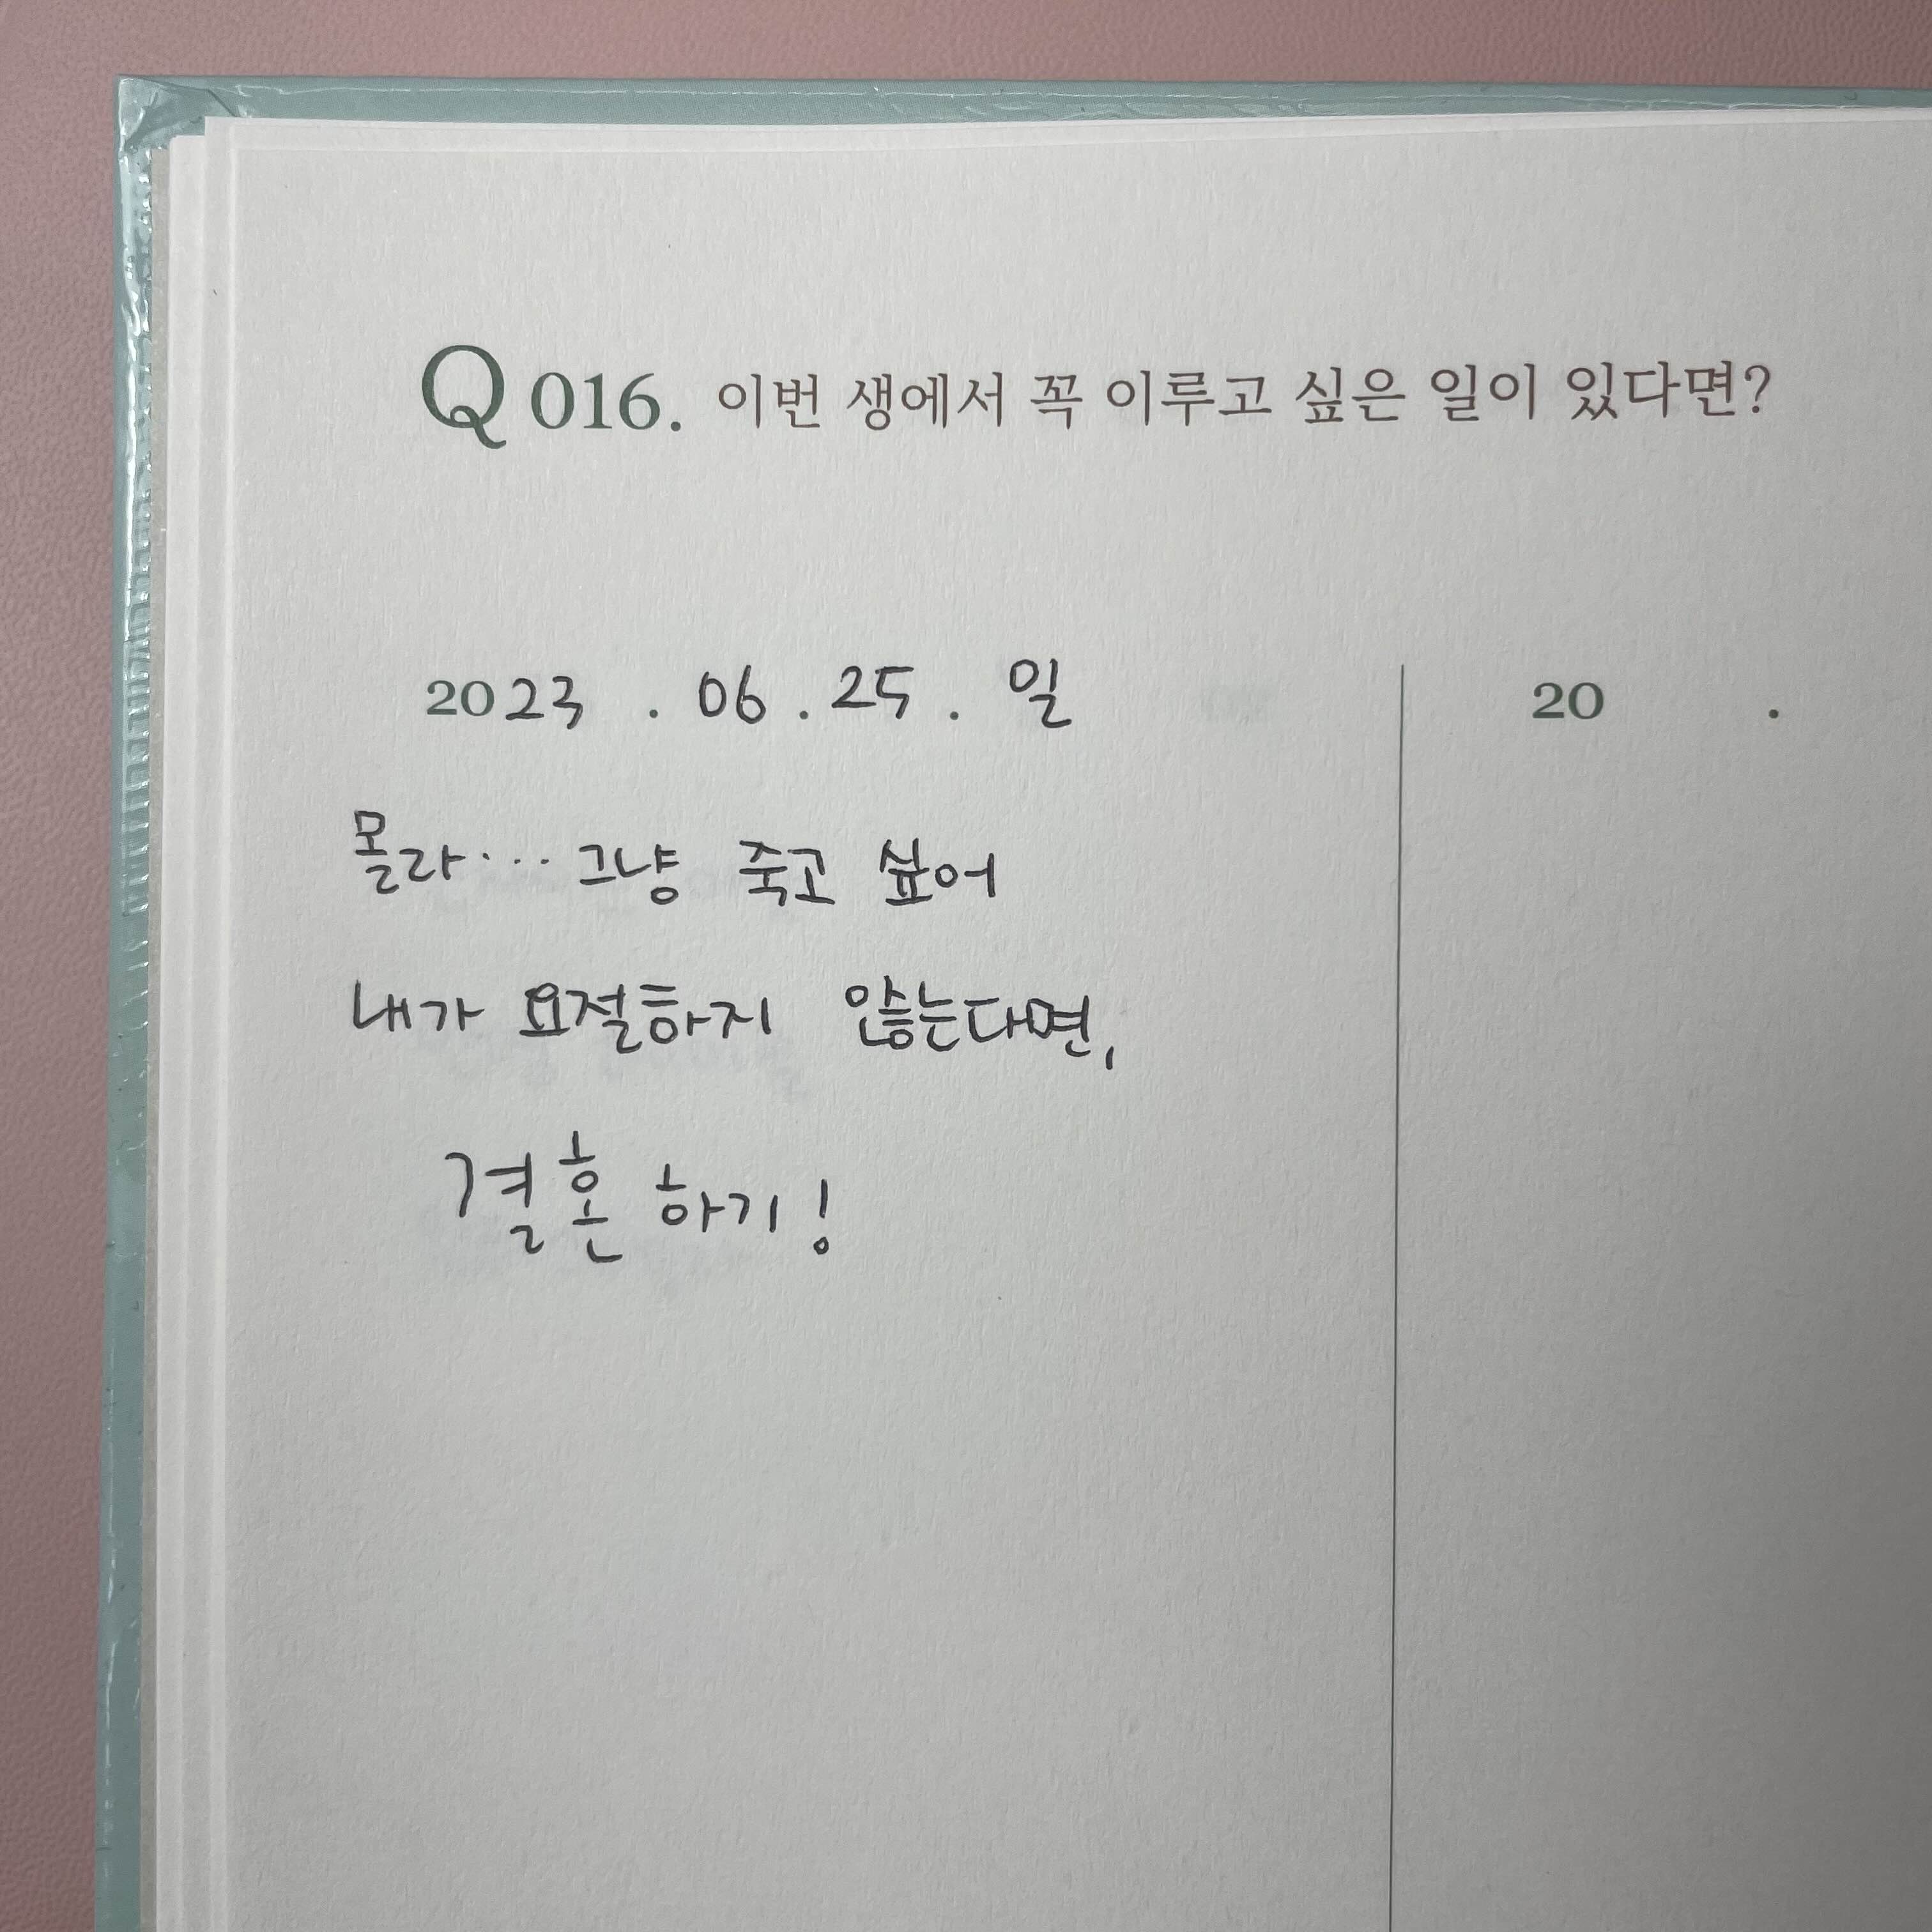 Q 016. 이번 생에서 꼭 이루고 싶은 일이 있다면?
2023 . 06 . 25 . 일
20 .
몰라... 그냥 죽고 싶어
내가 요절하지 않는다면,
결혼 하기!